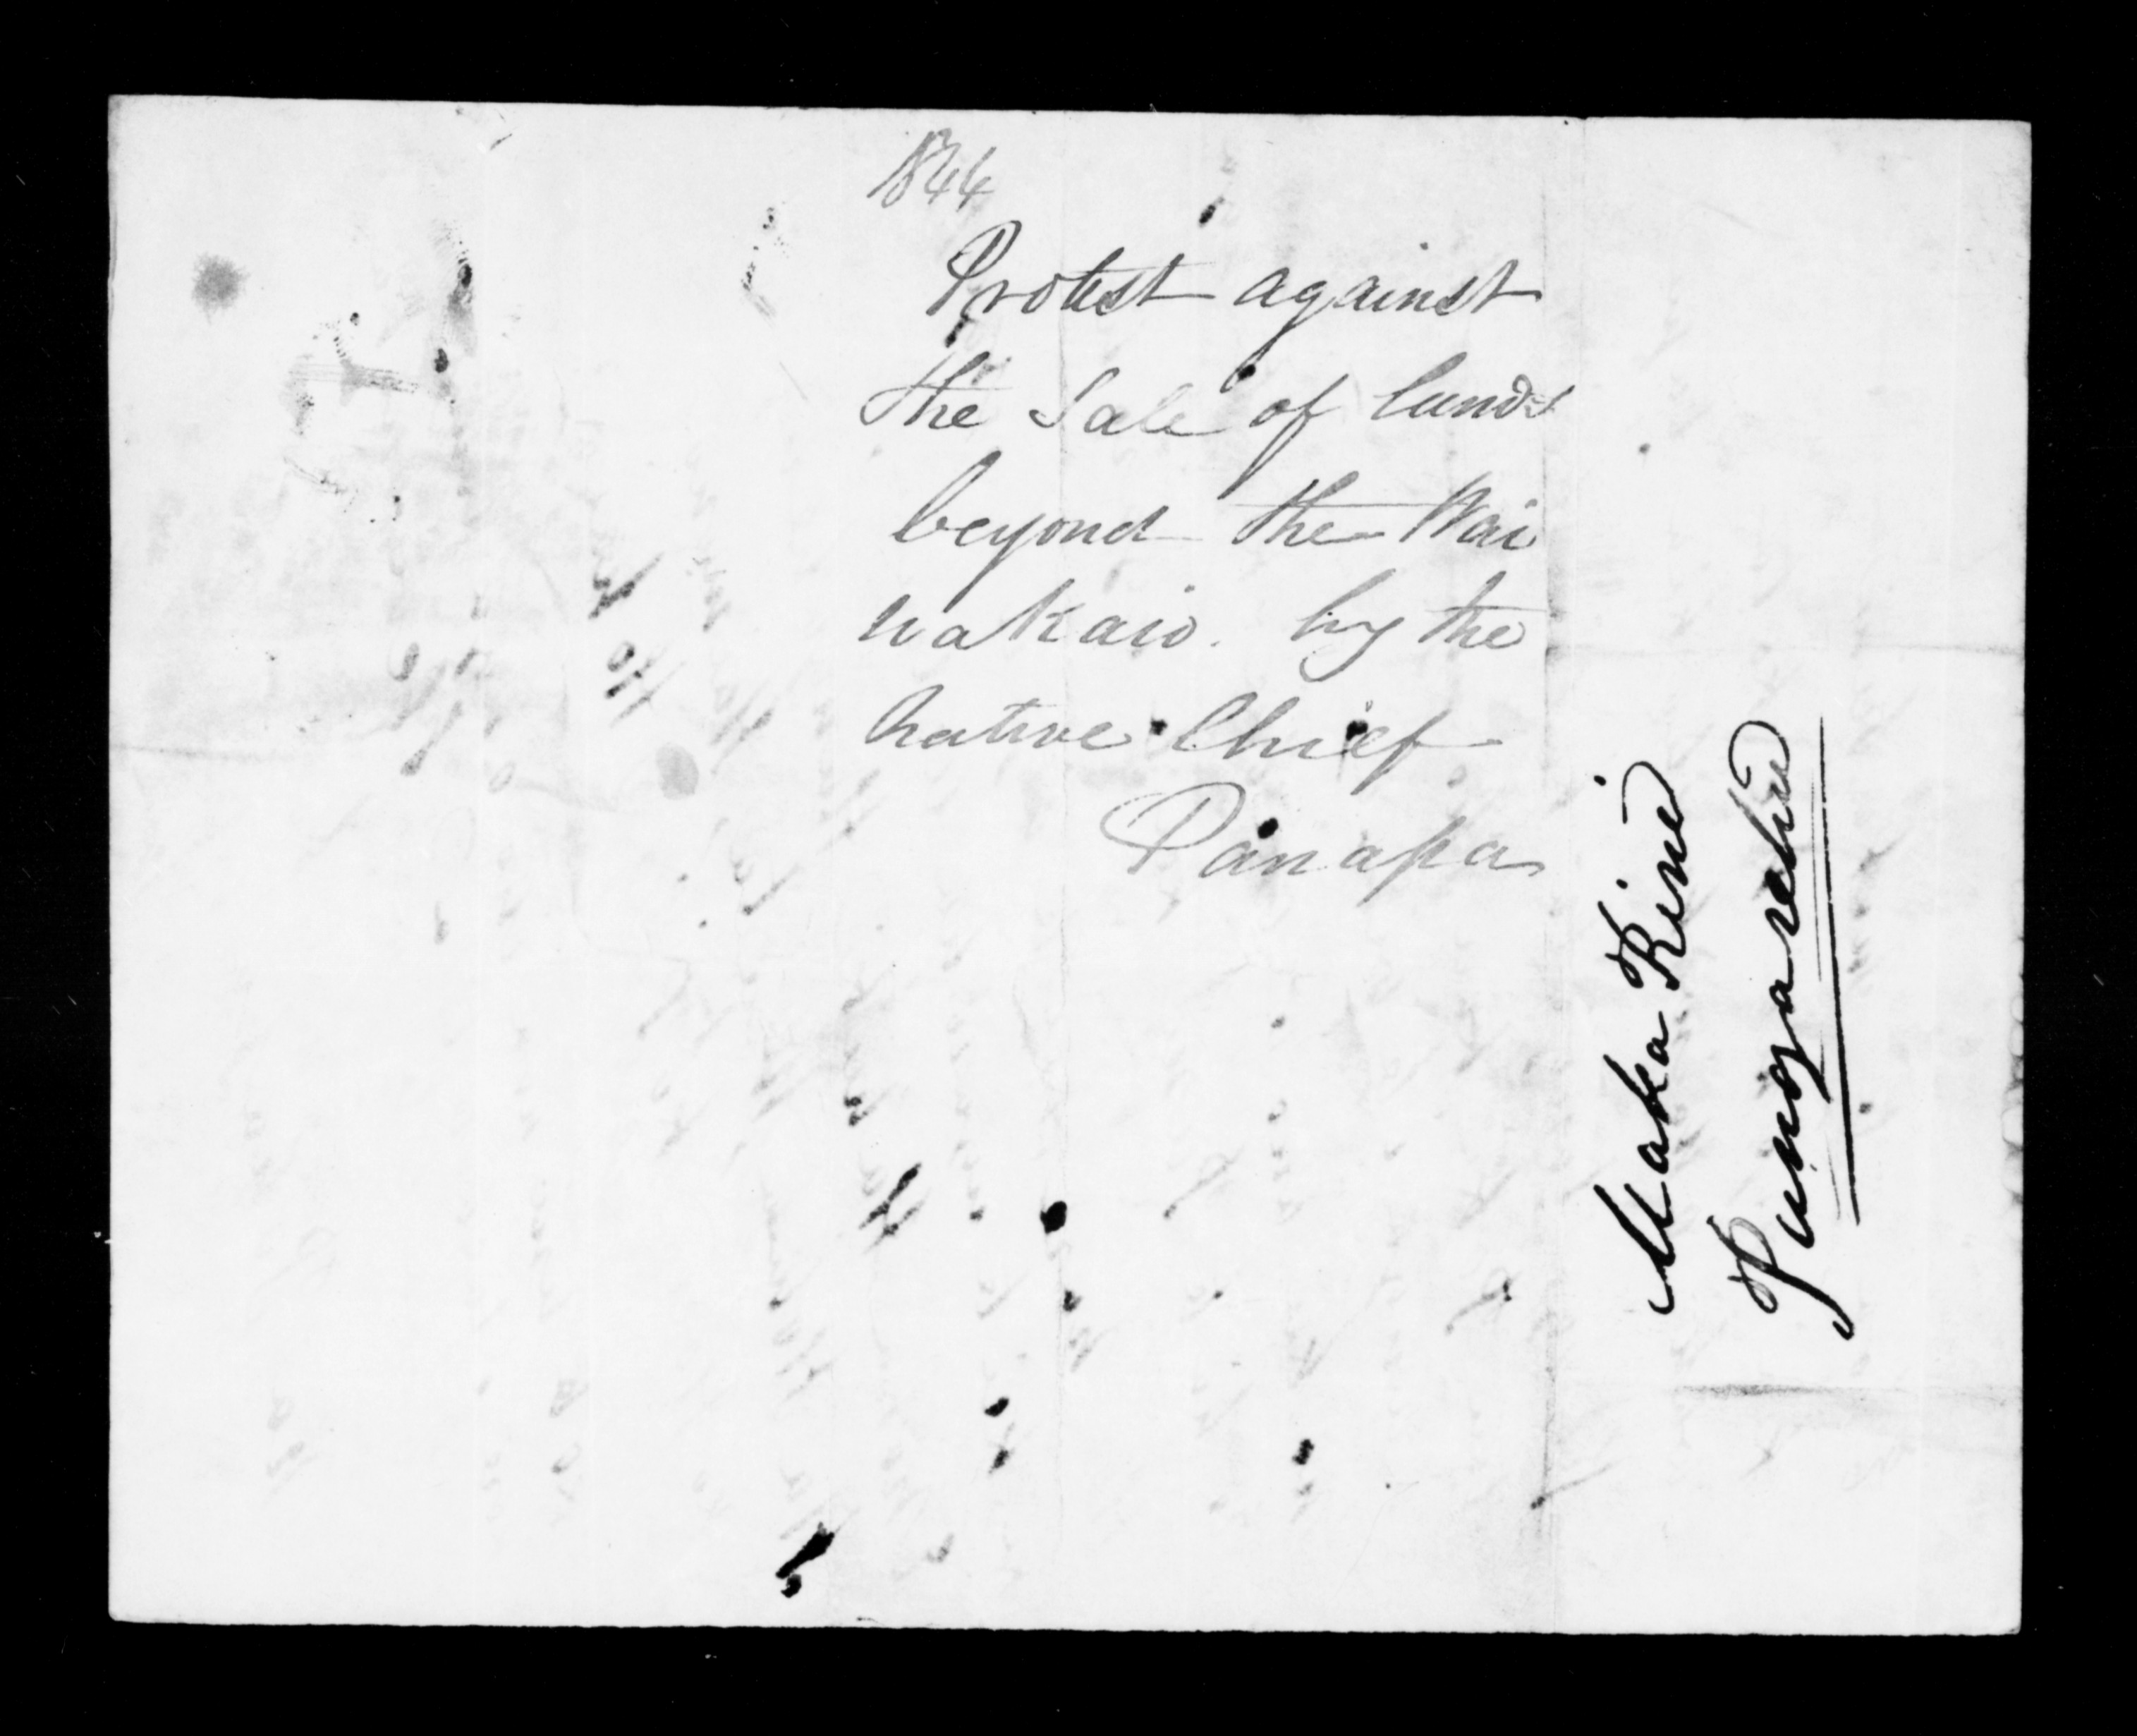 1844
Protest against
the Sale of lands
beyond the Wai
nakaio. by the
native Chief
Panapa
Maka Rine
Pungarehu